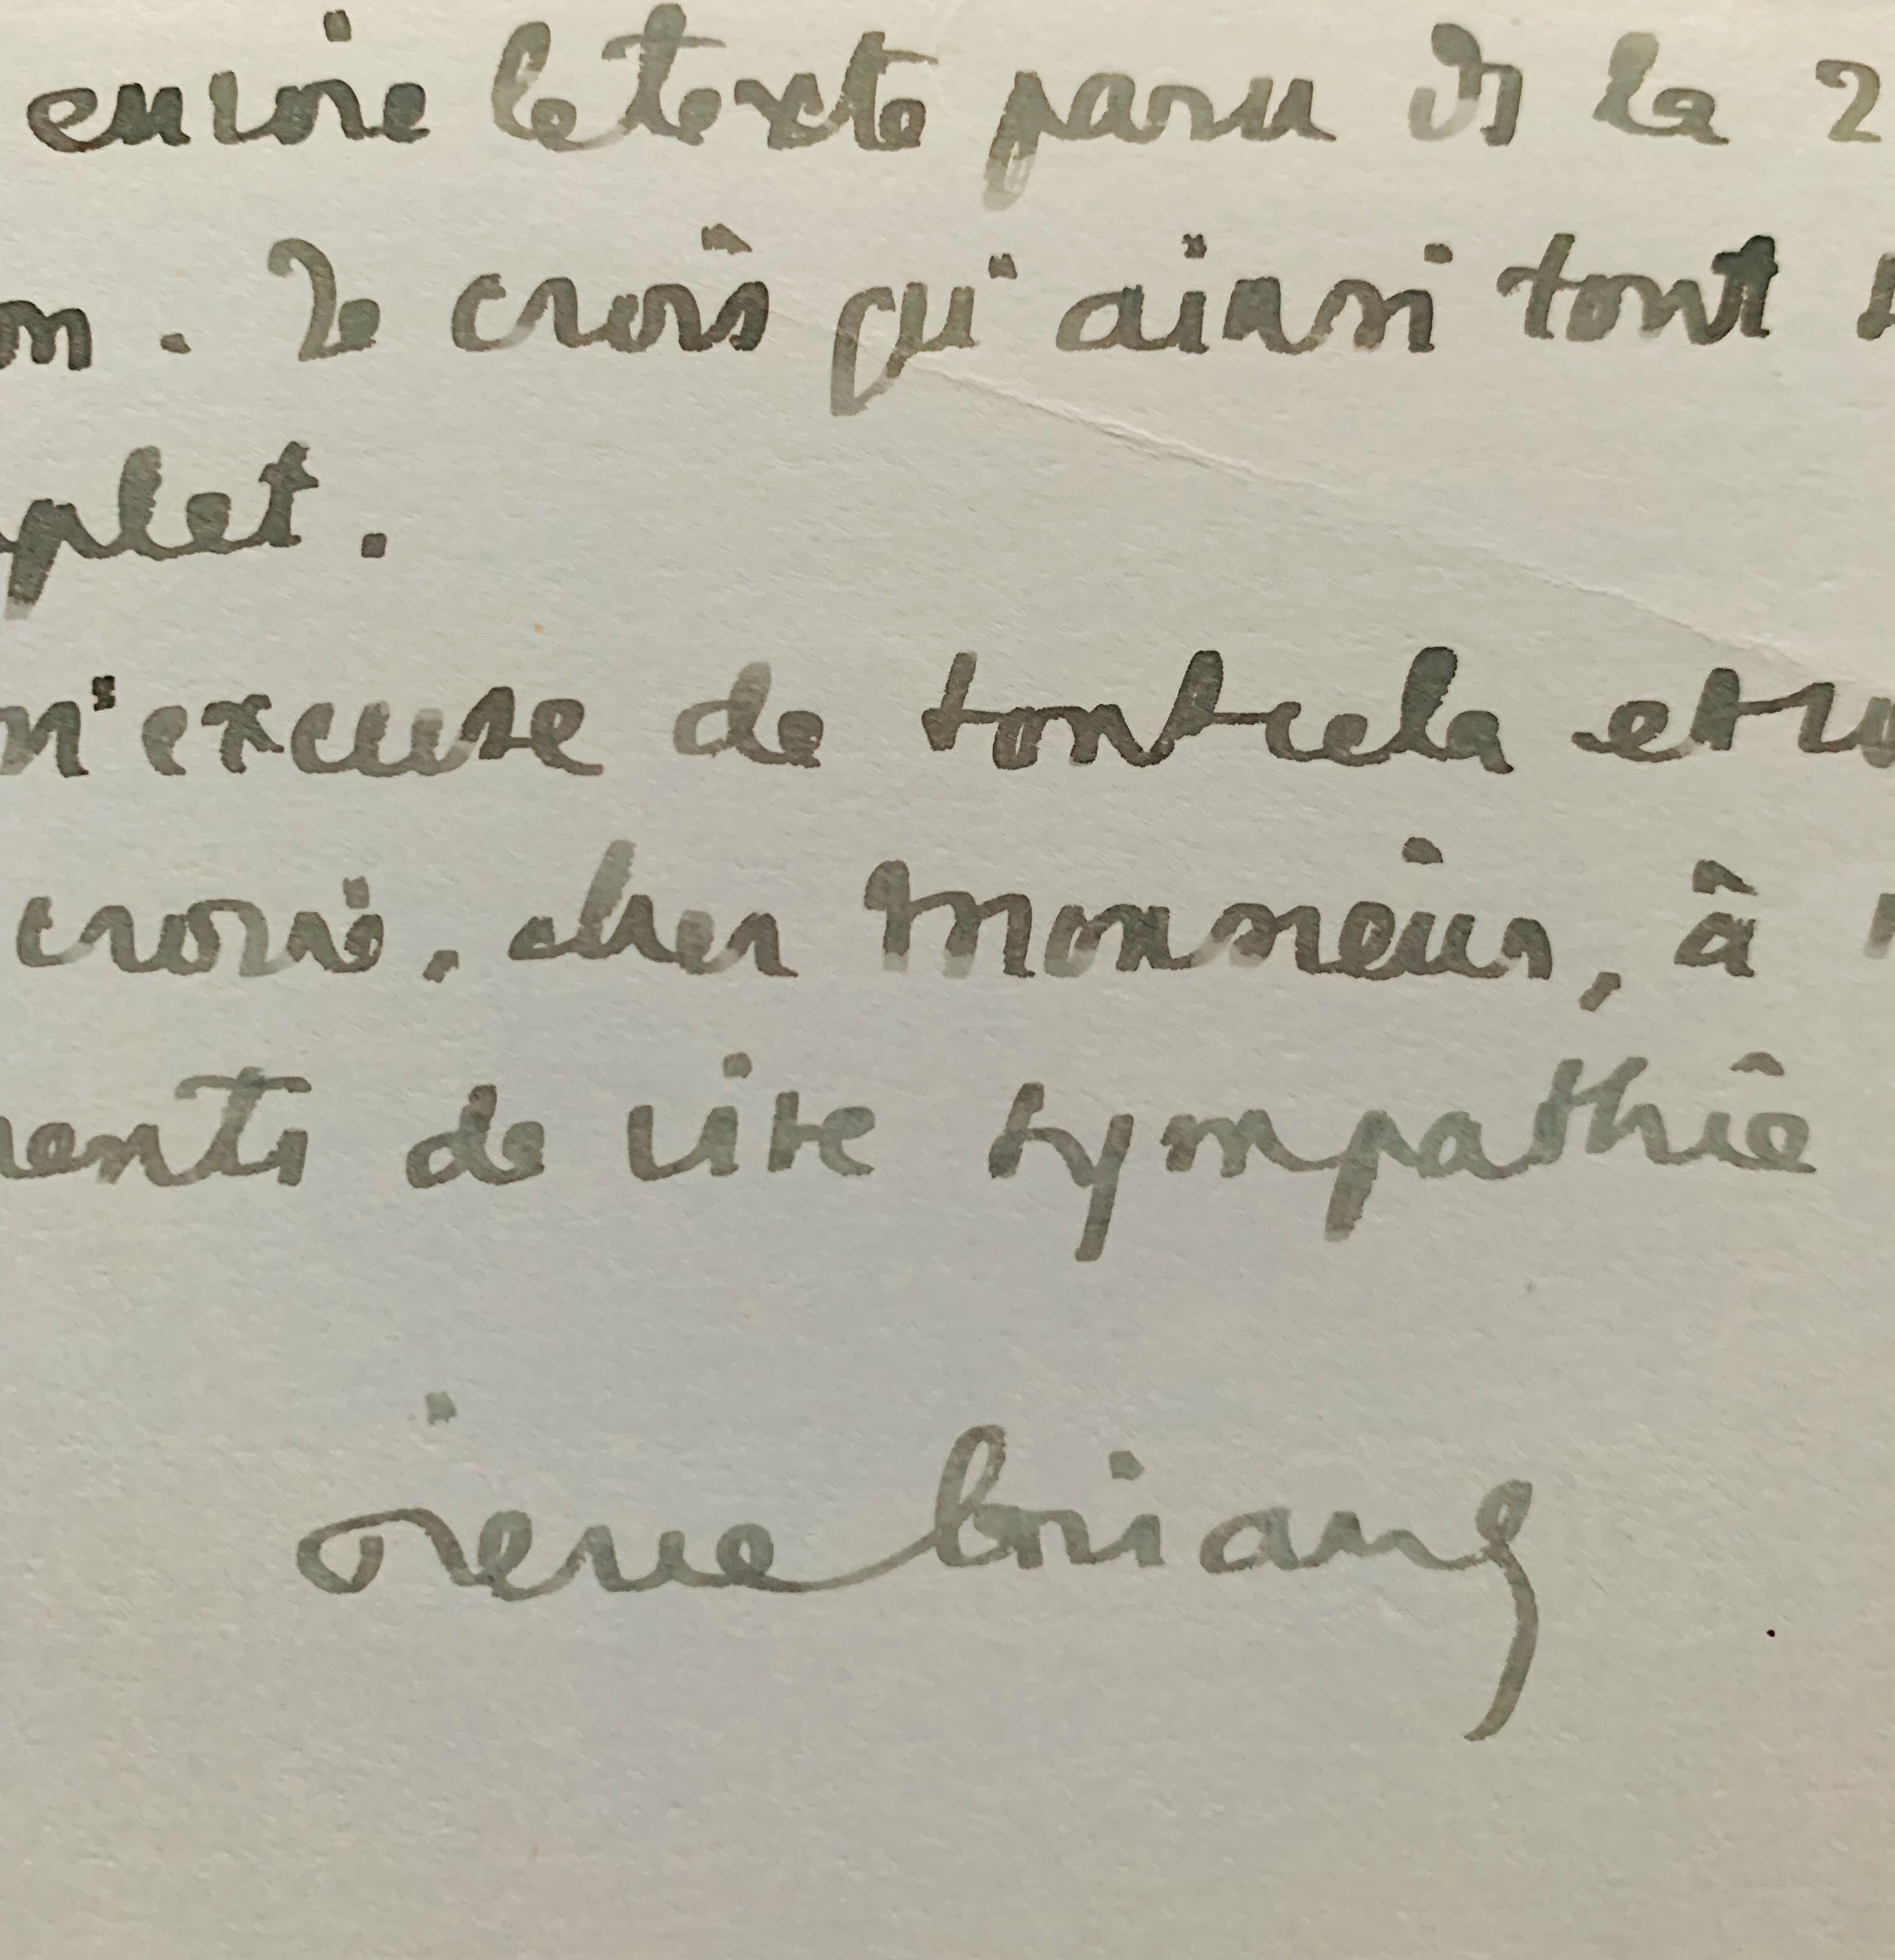 encore le texte paru ds la 2
on. Je crois qu'ainsi tout s
plet.
m'excuse de tout cela et v
croire, cher Monsieur, à
ments de vive sympathie